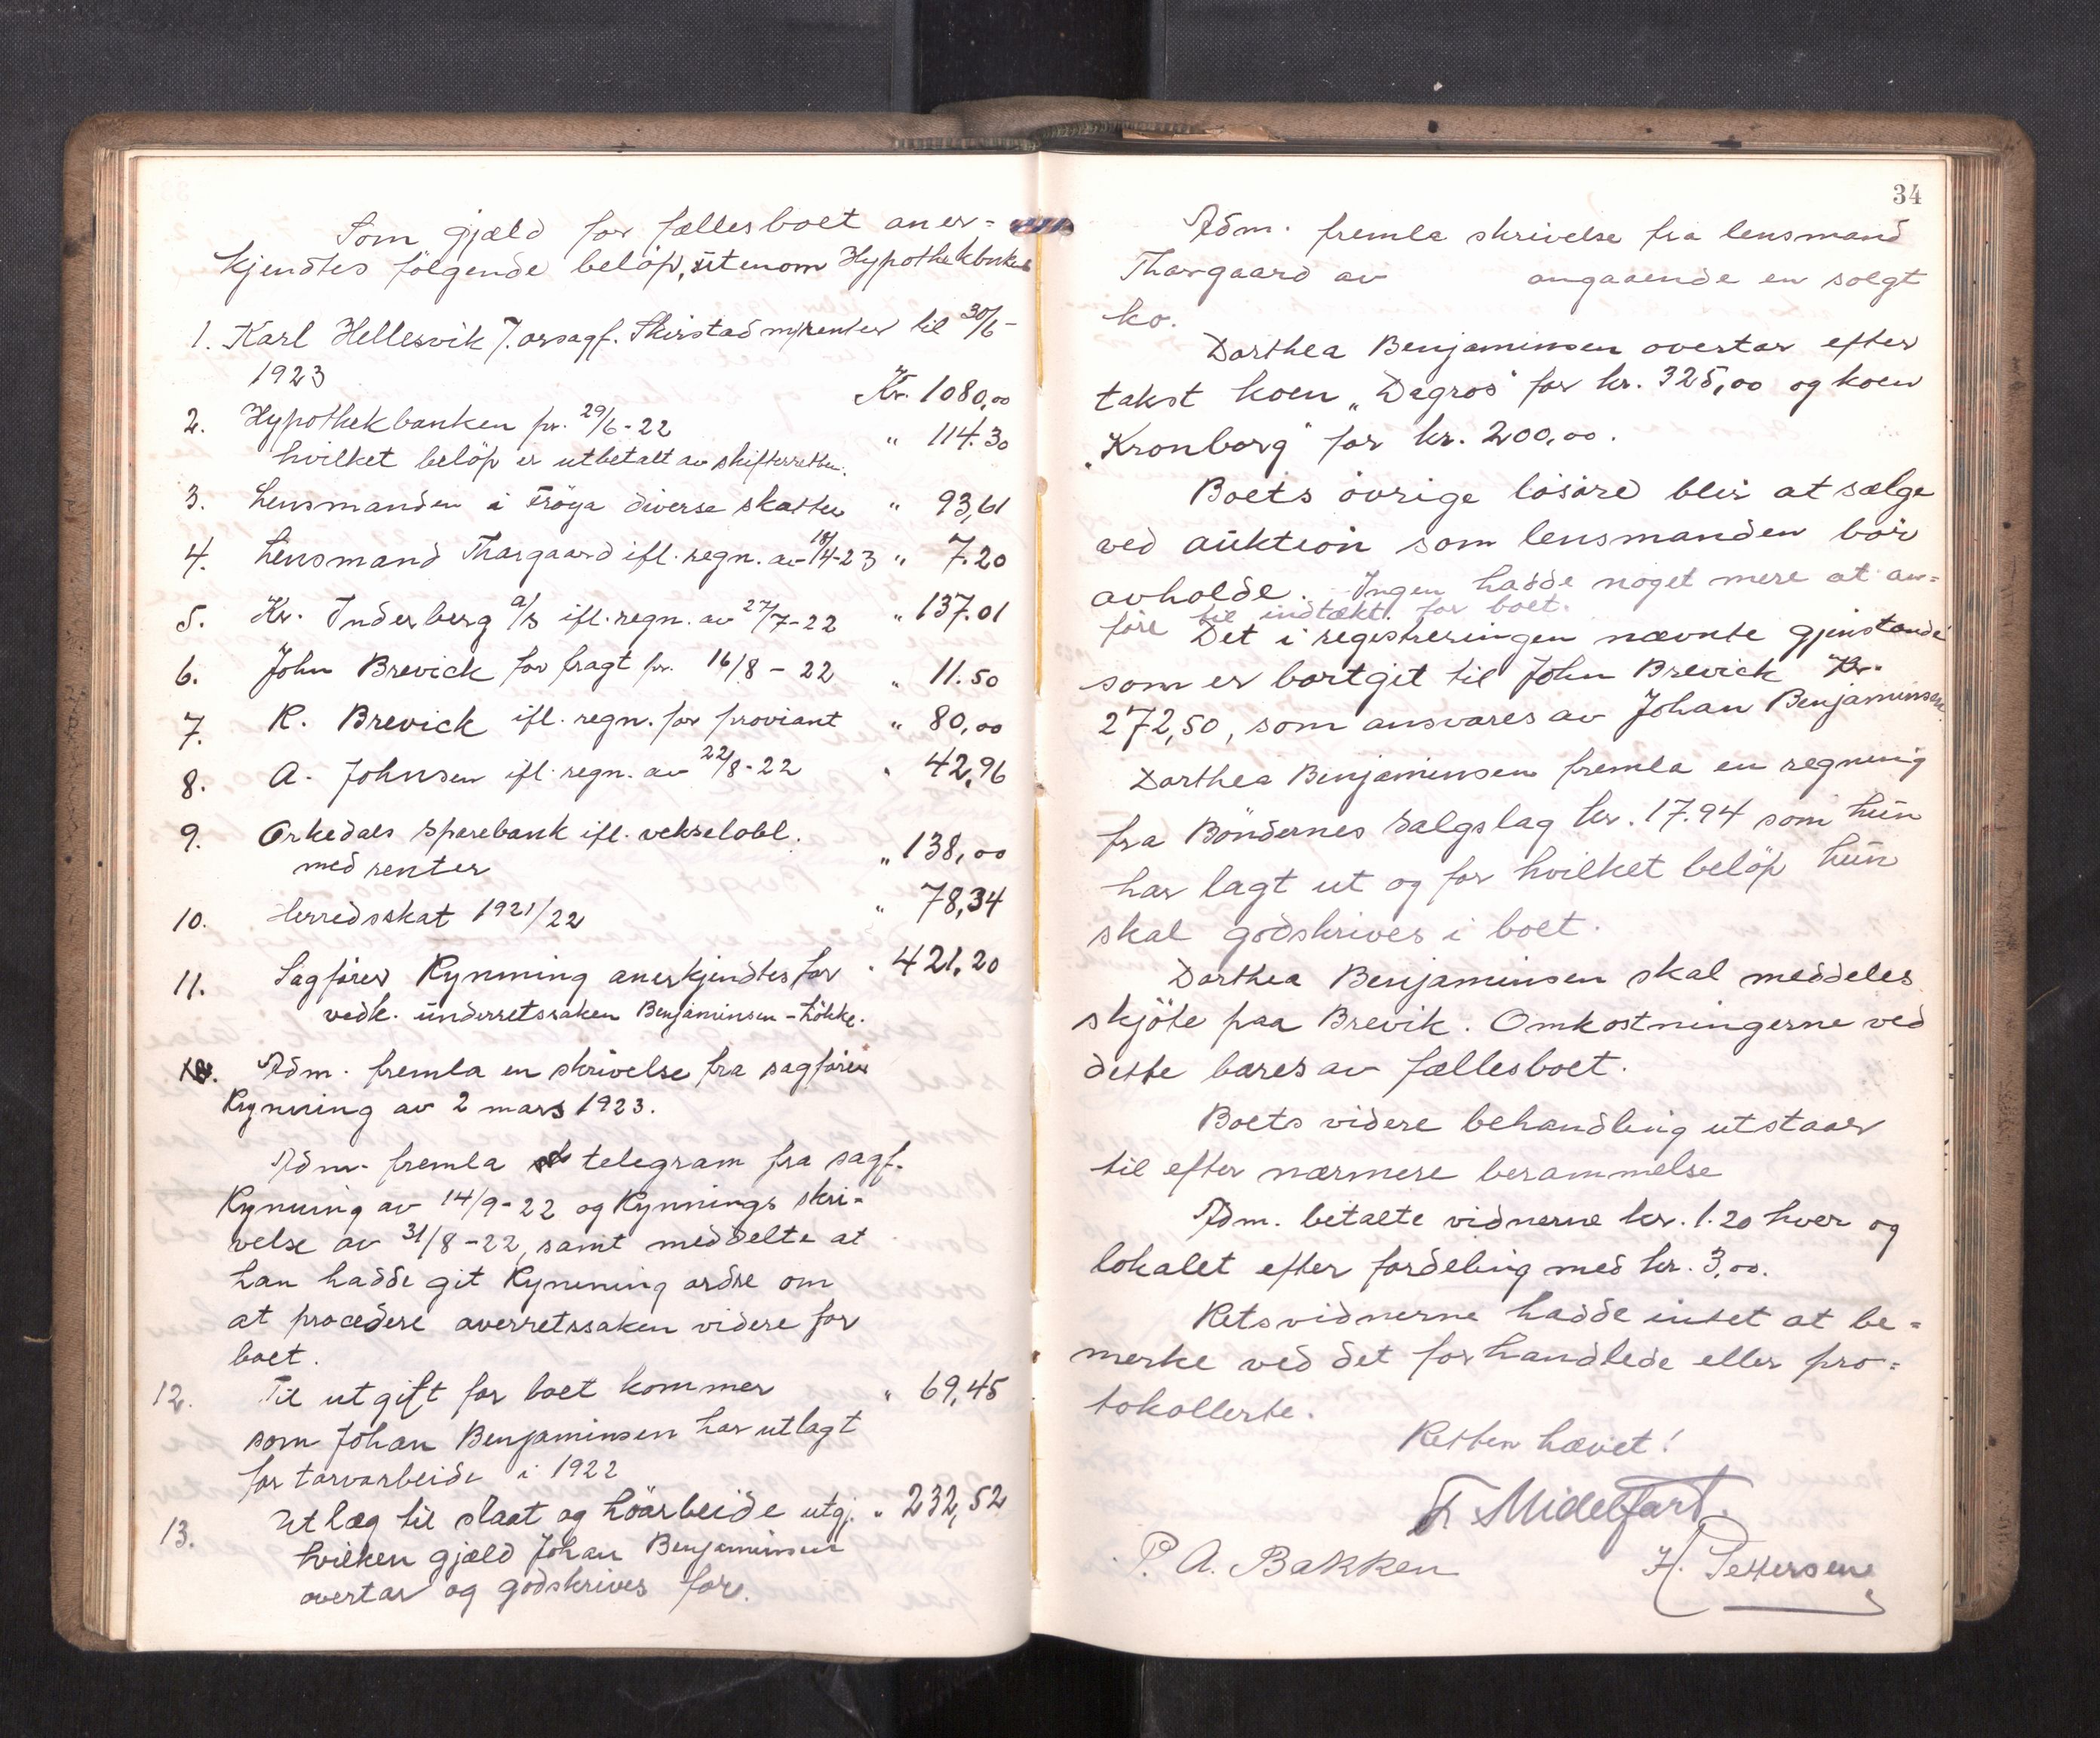 Som gjæld for fællesboet aner-
kjendtes følgende beløp, utenom Hypothekbanken
1. Karl Hellesvik Skirstad m/renter til 30/6-
1923 Kr. 1080,00
2. Hypothekbanken pr. 29/6-22 " 114.30
hvilket beløp er utbetalt av skifteretten.
3. Lensmanden i Fröya diverse skatter " 93,61
4. Lensmand Thorgaard ifl. regn. av 18/4-23 " 7.20
5. Kr. Inderberg a/s ifl. regn. av 27/7-22 " 137.01
6. John Brevick for fragt pr. 16/8-22 " 11.50
7. R. Brevick ifl. regn. for proviant " 80,00
8. A. Johnsen ifl. regn. av 22/8-22 " 42,96
9. Orkedals Sparebank ifl. vekselobl.
med renter " 138,00
10. Herredsskat 1921/22 " 78,34
11. Sagförer Rynning anerkjendtes for " 421,20
vedk. underretssaken Benjaminsen - Lökke.
Adm. fremla en skrivelse fra sagförer
Rynning av 2 mars 1923.
Adm. fremla telegram fra sagf.
Rynning av 14/9-22 og Rynnings skri-
velse av 31/8-22, samt meddelte at
han hadde git Rynning ordre om
at procedere overretssaken videre for
boet.
12. Til utgift for boet kommer " 69,45
som Johan Benjaminsen har utlagt
for torvarbeide i 1922
13. Utlæg til slaat og höarbeide utgj. " 232,52
hvilken gjæld Johan Benjaminsen
overtar og godskrives for.
34
Adm. fremla skrivelse fra lensmand
Thorgaard av angaaende en solgt
ko.
Dorthea Benjaminsen overtar efter
takst koen „Dagros" for kr. 325,00 og koen
„Kronborg" for kr. 200,00.
Boets övrige lösöre blir at sælge
ved auktion som lensmanden bör
avholde. Ingen hadde noget mere at an-
före til indtækt for boet.
Det i registreringen nævnte gjenstande
som er bortgit til John Brevick Kr.
272,50, som ansvares av Johan Benjaminsen.
Dorthea Benjaminsen fremla en regning
fra Böndernes Salgslag kr. 17.94 som hun
har lagt ut og for hvilket belöp hun
skal godskrives i boet.
Dorthea Benjaminsen skal meddeles
skjöte paa Brevik. Omkostningerne ved
dette bæres av fællesboet.
Boets videre behandling utstaar
til efter nærmere berammelse
Adm. betalte vidnerne kr. 1.20 hver og
lokalet efter fordeling med kr. 3,00.
Retsvidnerne hadde intet at be-
merke ved det forhandlede eller pro-
tokollerte.
Retten hævet!
Fr Midelfart.
P. A. Bakken H. Pettersen